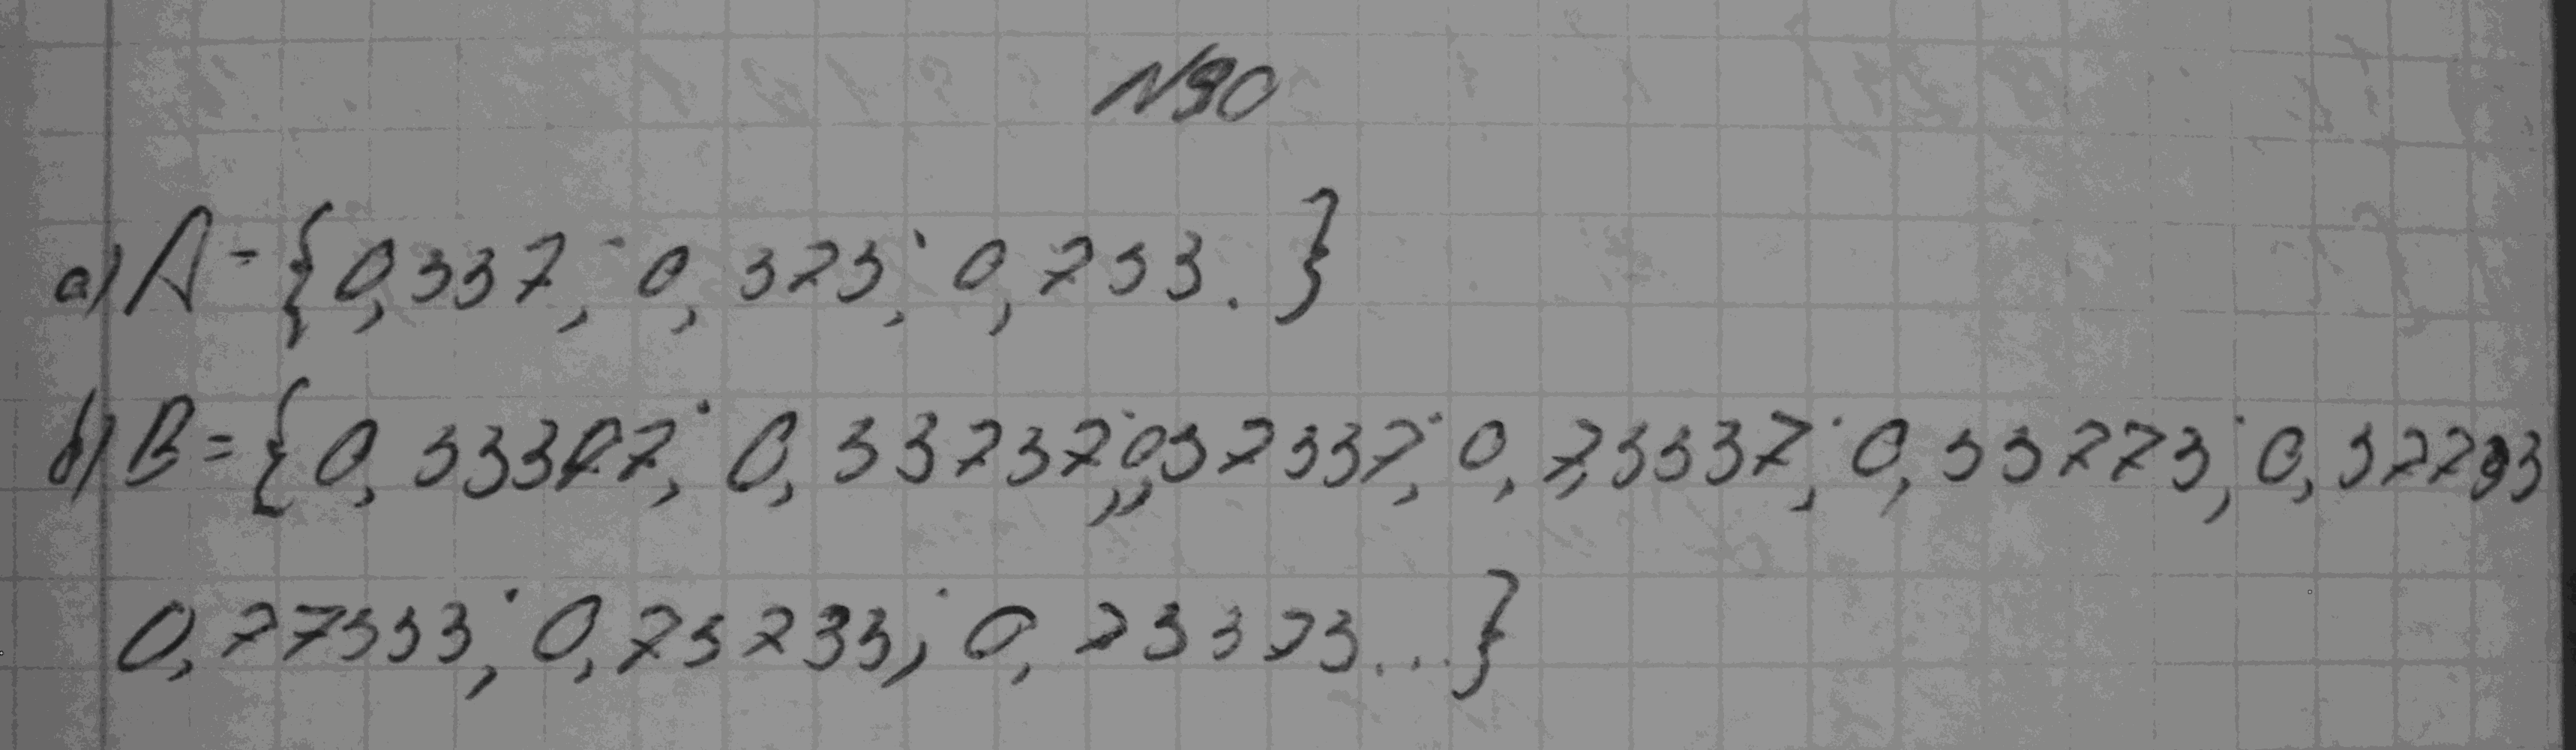 №90
а) A = {0,337; 0,373; 0,733.}
б) B = {0,33377; 0,33737; 0,37337; 0,73337; 0,33773; 0,37733
0,77333; 0,73733; 0,73373...}